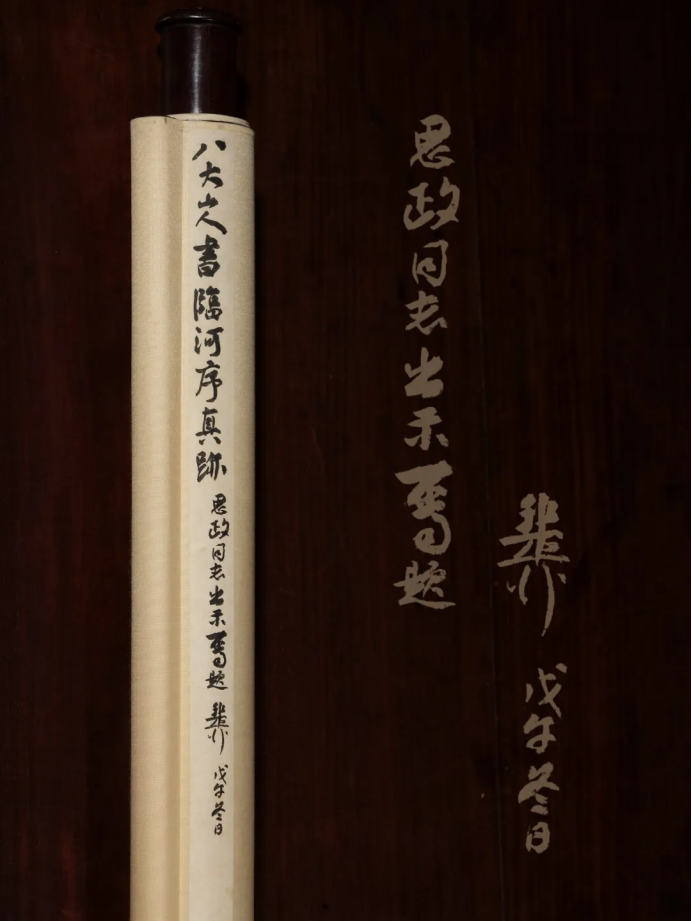 八大山人書臨河序真跡
思政同志出示屬題 戊午冬日
思政同志出示屬題
戊午冬日